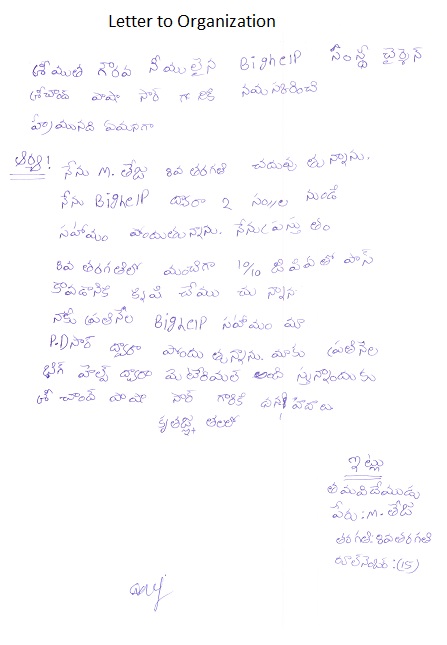 Letter to Organization
శ్రీమతి గౌరవ నీయులైన BighelP సంస్థ చైర్మెన్
శ్రీచాంద్ పాషా సార్ గారికి నమస్కరించి
వ్రాయునది ఏమనగా
ఆర్యా! నేను M. తేజ 8వ తరగతి చదువు తున్నాను.
నేను BighelP ద్వారా 2 సం//ల నుండి
సహాయం పొందుతున్నాను. నేను ప్రస్తు తం
8వ తరగతిలో మంచిగా 10/10 జి పి ఏ తో పాస్
కావడానికి కృషి చేయు చు న్నాను
నాకు ప్రతినెల BighelP సహాయం మా
P.Dసార్ ద్వారా పొందు తున్నాను. మాకు ప్రతినెల
బిగ్ హెల్ప్ ద్వారా మెటీరియల్ అంది స్తున్నందుకు
శ్రీ చాంద్ పాషా సార్ గారికి ధన్యవాదాలు
కృతజ్ఞ తలతో
ఇట్లు
తమ విదేయుడు
పేరు: M. తేజ
తరగతి: 8వ తరగతి
రూల్ నెంబర్ : (15)